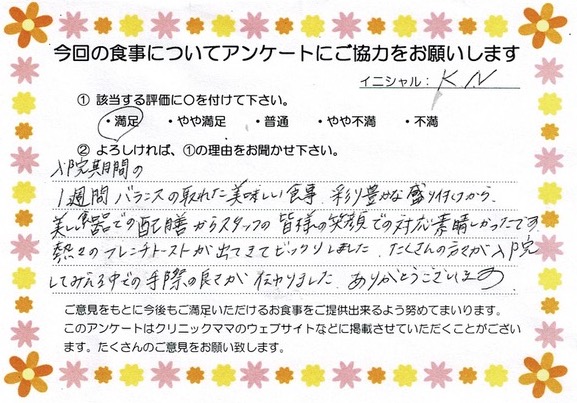 今回の食事についてアンケートにご協力をお願いします
イニシャル: K N
① 該当する評価に○を付けて下さい。
・満足 ・やや満足 ・普通 ・やや不満 ・不満
② よろしければ、①の理由をお聞かせ下さい。
入院期間の
1週間 バランスの取れた美味しい食事 彩り豊かな盛り付けから
美しい食器での配膳からスタッフの皆様の笑顔での対応素晴しかったです
熱々のフレンチトーストが出てきてビックリしました たくさんの方々が入院
してみえる中での手際の良さが伝わりました ありがとうございます
ご意見をもとに今後もご満足いただけるお食事をご提供出来るよう努めてまいります。
このアンケートはクリニックママのウェブサイトなどに掲載させていただくことがござい
ます。たくさんのご意見をお願い致します。